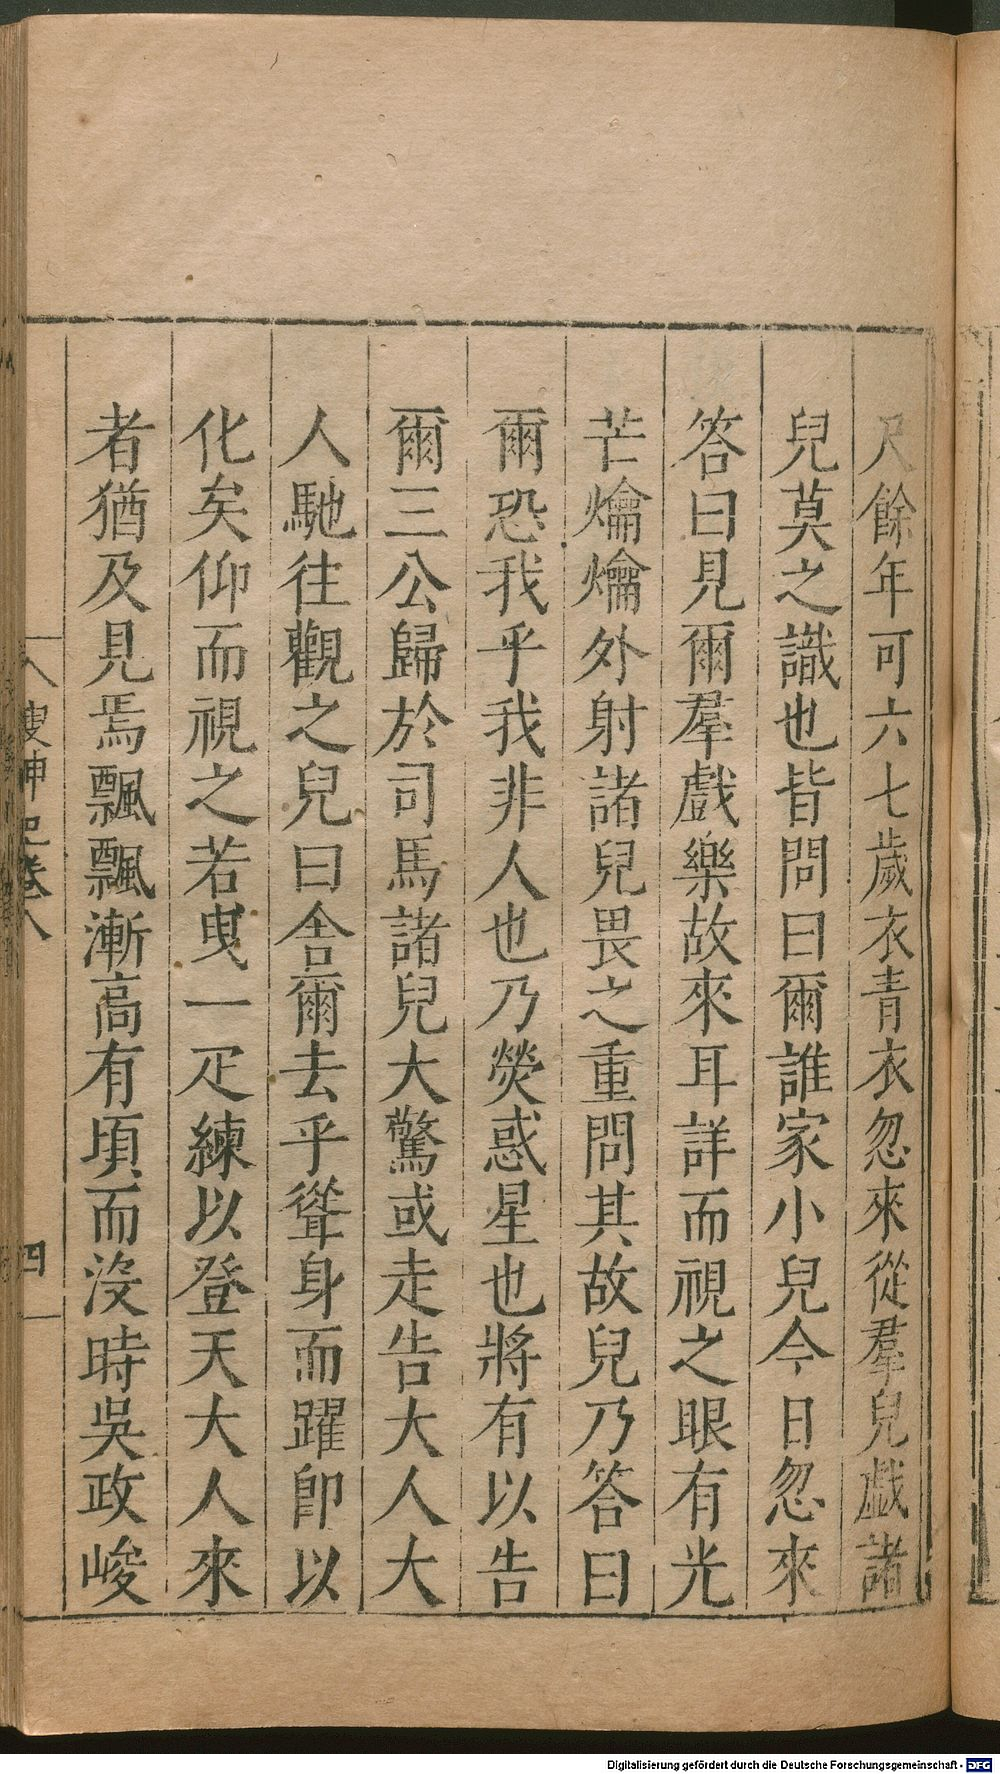 尺餘年可六七歲衣青衣忽來從羣兒戲諸
兒莫之識也皆問曰爾誰家小兒今日忽來
答曰見爾羣戲樂故來耳詳而視之眼有光
芒爚爚外射諸兒畏之重問其故兒乃答曰
爾恐我乎我非人也乃熒惑星也將有以告
爾三公歸於司馬諸兒大驚或走告大人大
人馳往觀之兒曰舍爾去乎聳身而躍卽以
化矣仰而視之若曳一疋練以登天大人來
者猶及見焉飄飄漸高有頃而沒時吳政峻
搜神記卷八
四
Digitalisierung gefördert durch die Deutsche Forschungsgemeinschaft - DFG